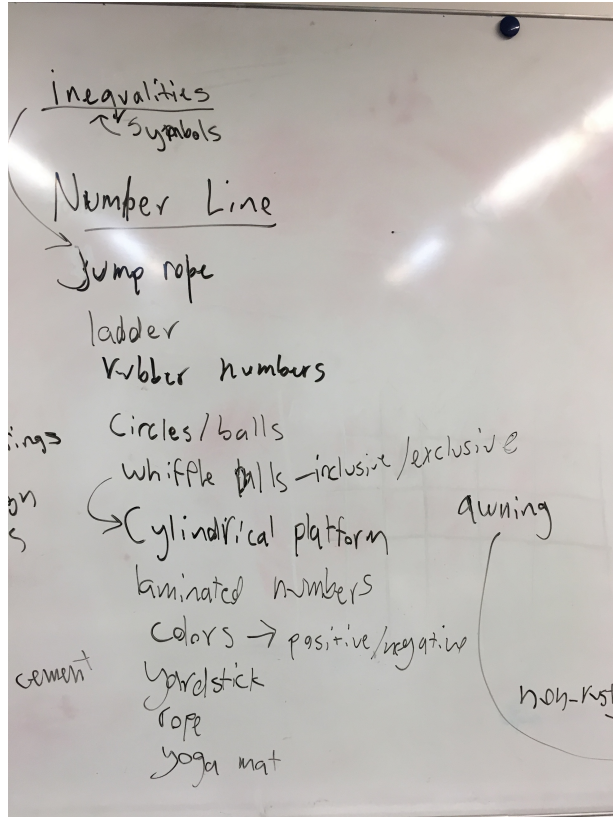 inequalities
symbols
Number Line
jump rope
ladder
rubber numbers
Circles/balls
whiffle balls - inclusive/exclusive
Cylindrical platform
awning
laminated numbers
colors → positive/negative
cement
yardstick
rope
yoga mat